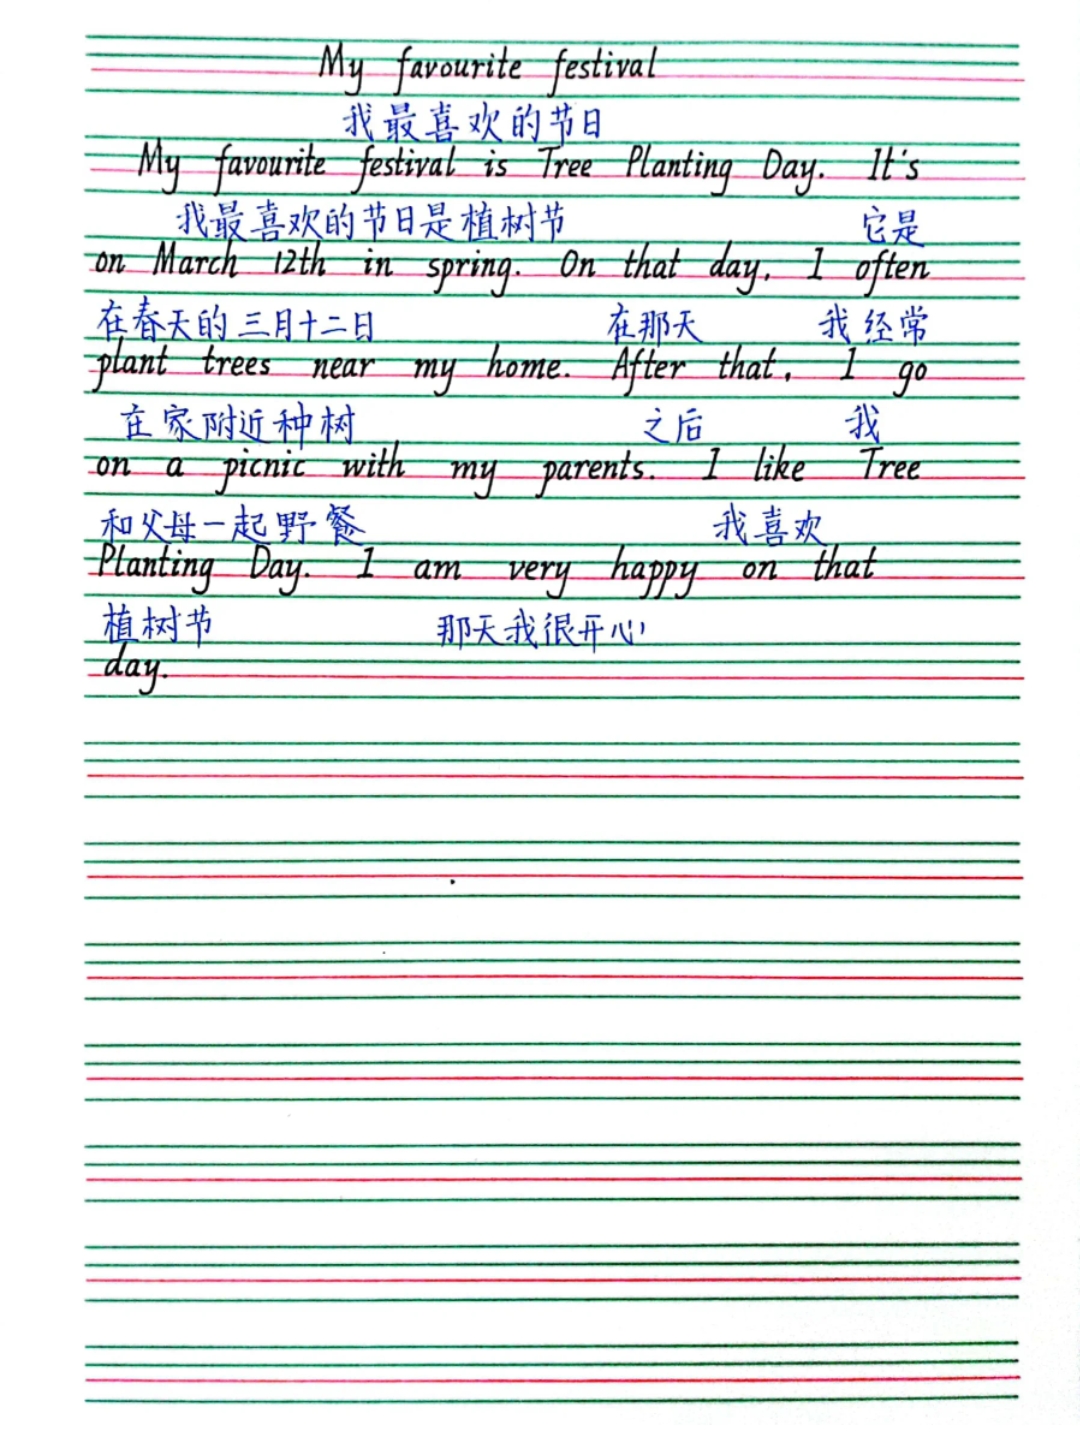 My favourite festival
我最喜欢的节日
My favourite festival is Tree Planting Day. It's
我最喜欢的节日是植树节 它是
on March 12th in spring. On that day, I often
在春天的三月十二日 在那天 我经常
plant trees near my home. After that, I go
在家附近种树 之后 我
on a picnic with my parents. I like Tree
和父母一起野餐 我喜欢
Planting Day. I am very happy on that
植树节 那天我很开心
day.